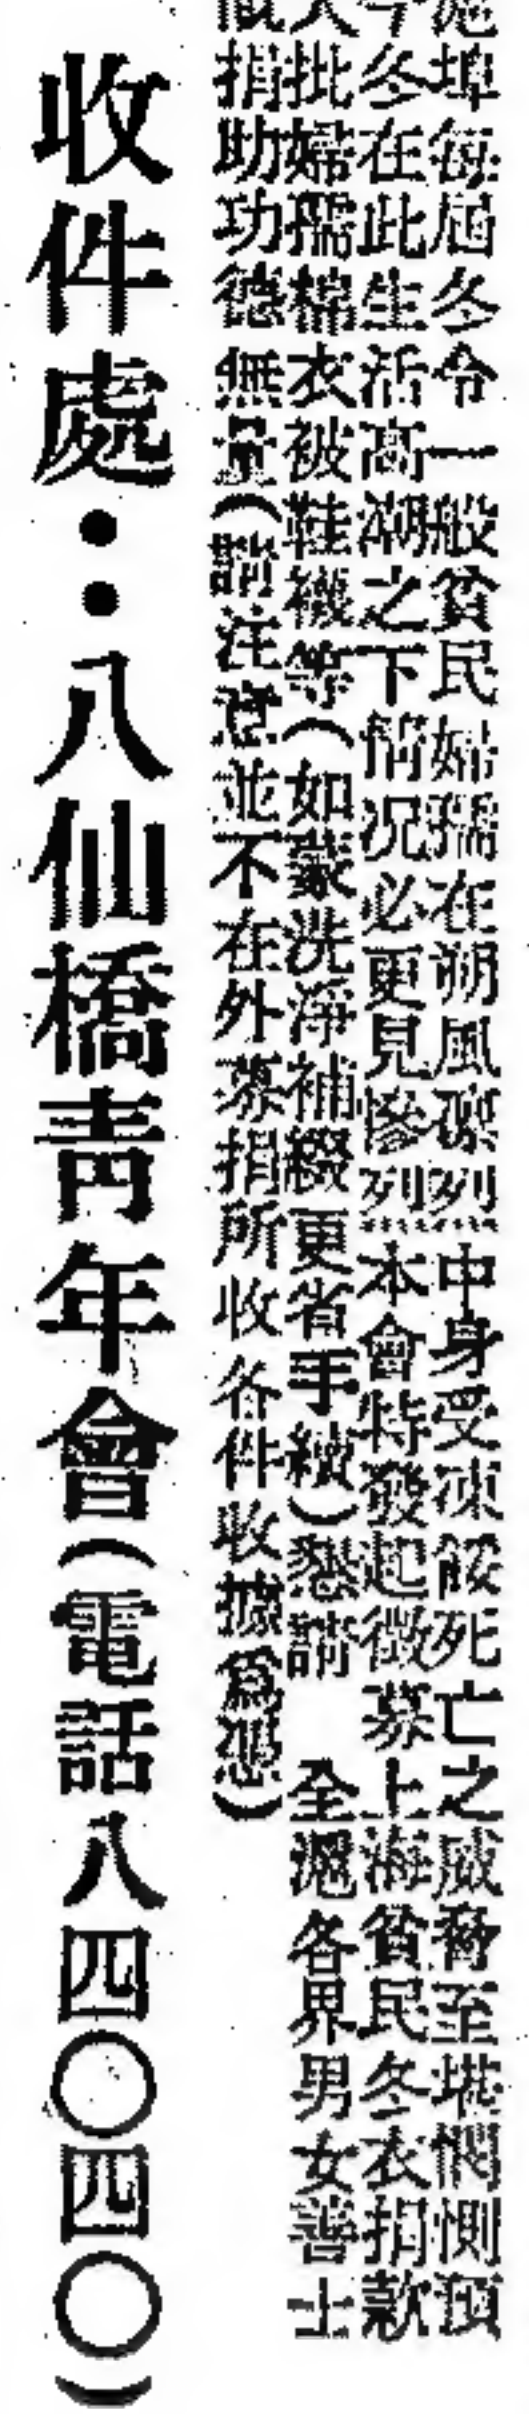 滬埠每屆冬令一般貧民婦孺在朔風凜烈中身受凍餒死亡之威脅至堪憫惻預
今冬在此生活高潮之下情况必更見慘烈本會特發起徵募上海貧民冬衣捐款
大批婦孺棉衣被鞋襪等(如蒙洗淨補綴更省手續)懇請 全滬各界男女善士
慨捐助功德無量(請注意並不在外募捐所收各件收據爲憑)
收件處:八仙橋靑年會(電話八四〇四〇)